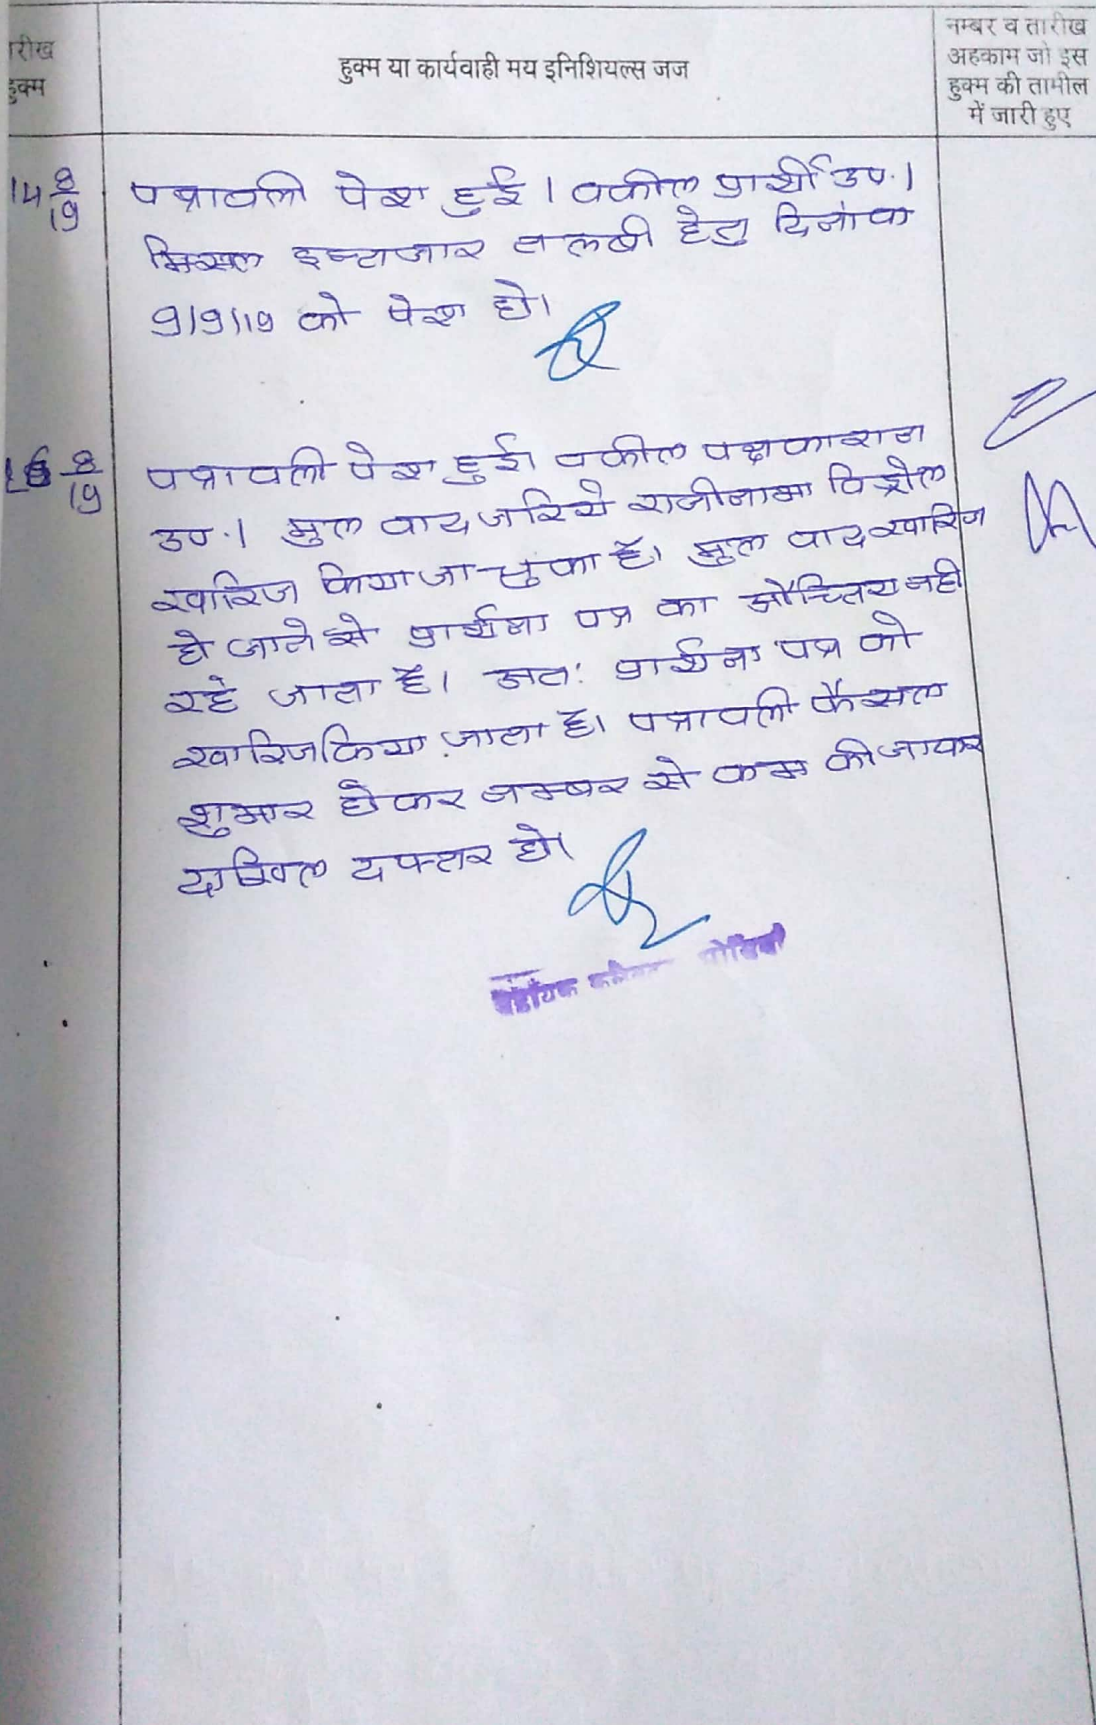 तारीख
हुक्म
हुक्म या कार्यवाही मय इनिशियल्स जज
नम्बर व तारीख
अहकाम जो इस
हुक्म की तामील
में जारी हुए
14 8/19
पत्रावली पेश हुई । वकील प्रार्थी उप. ।
मिसल इन्तजार तलबी हेतु दिनांक
9/9/19 को पेश हो।
8/19
पत्रावली पेश हुई। वकील पक्षकारान
उप. । मुल वाद जरिये राजीनामा विड्रोल
खारिज किया जा चुका है। मुल वाद खारिज
हो जाने से प्रार्थना पत्र का औचित्य नही
रहे जाता है। अतः प्रार्थना पत्र को
खारिज किया जाता है। पत्रावली फैसल
शुमार होकर नम्बर से कम की जाकर
दाखिल दफ्तर हो।
सहायक कलेक्टर